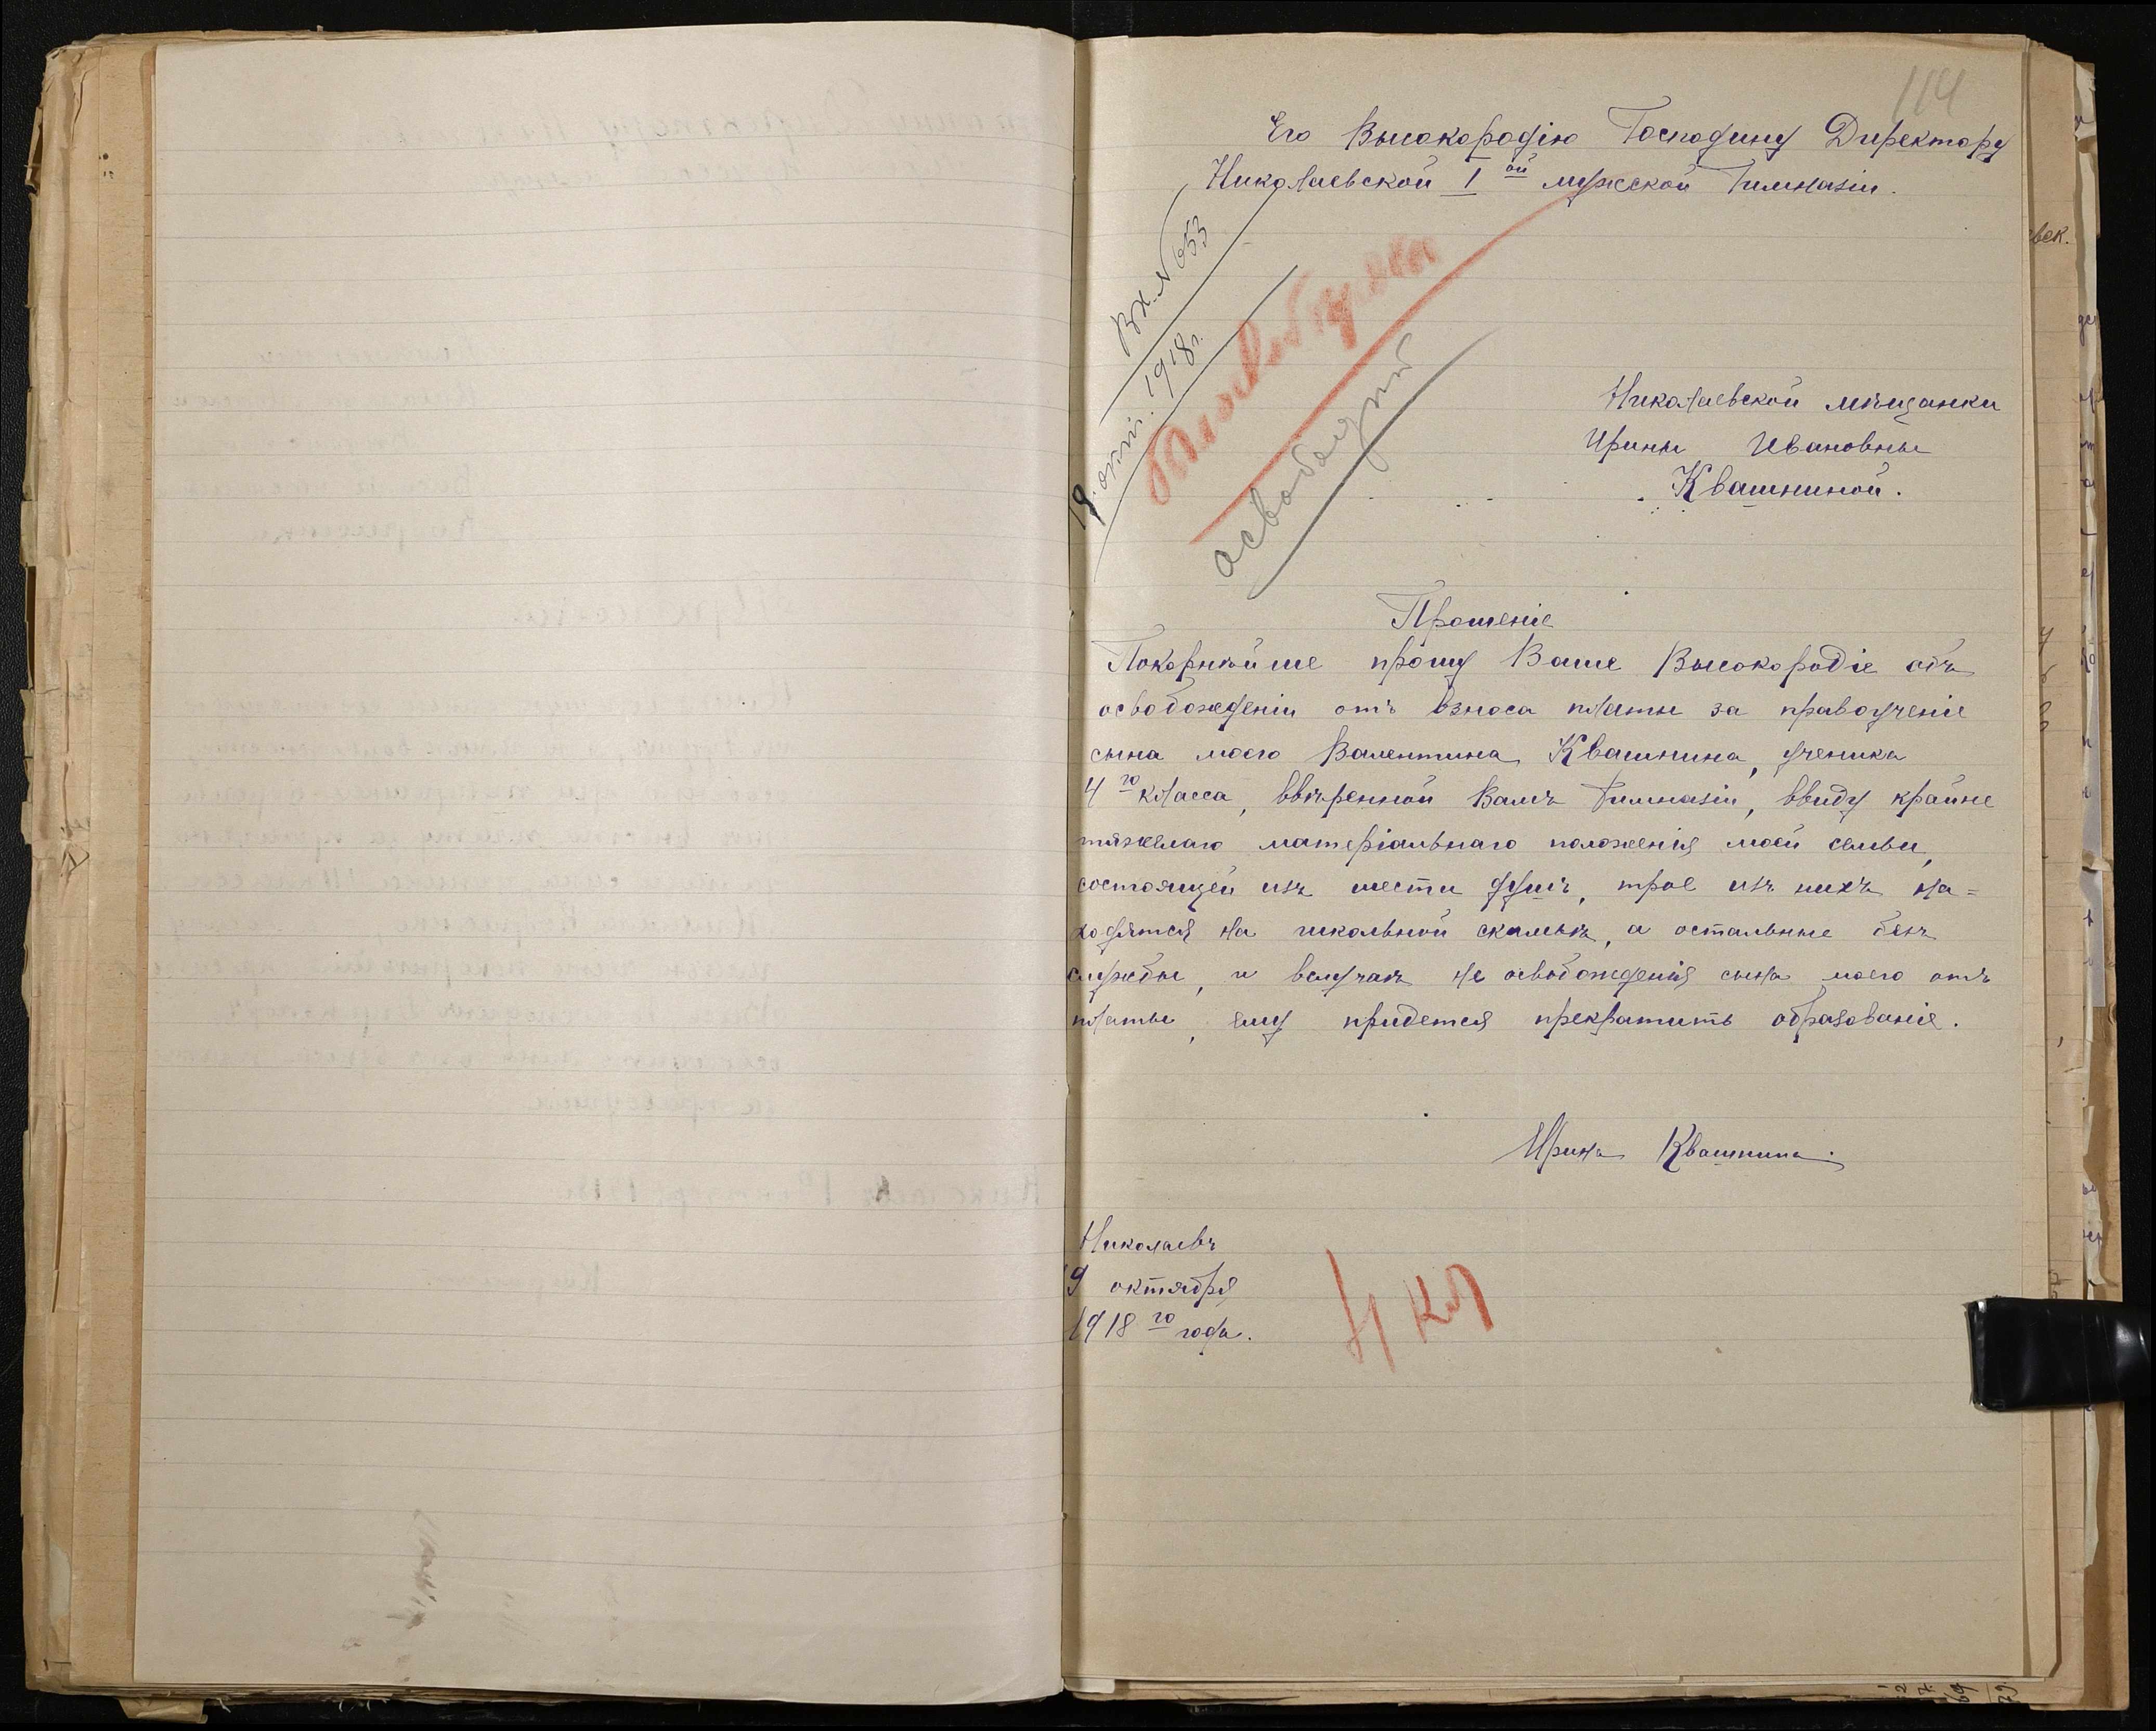 114
Его Высокородію Господину Директору
Николаевской I ой мужской Гимназіи.
Вх. № 653
19 окт. 1918 г.
освободить
Николаевской мѣщанки
Ирины Ивановны
Квашниной.
Прошеніе
Покорнѣйше прошу Ваше Высокородіе объ
освобожденіи отъ взноса платы за правоученіе
сына моего Валентина Квашнина, ученика
4 го класса, ввѣренной Вамъ Гимназіи, ввиду крайне
тяжелаго матеріальнаго положенія моей семьи,
состоящей изъ шести душъ, трое изъ нихъ на=
ходятся на школьной скамьѣ, а остальные безъ
службы, и вслучаѣ не освобожденія сына моего отъ
платы, ему придется прекратить образованіе.
Ирина Квашнина.
Николаевъ
9 октября
1918 го года.
4 кл